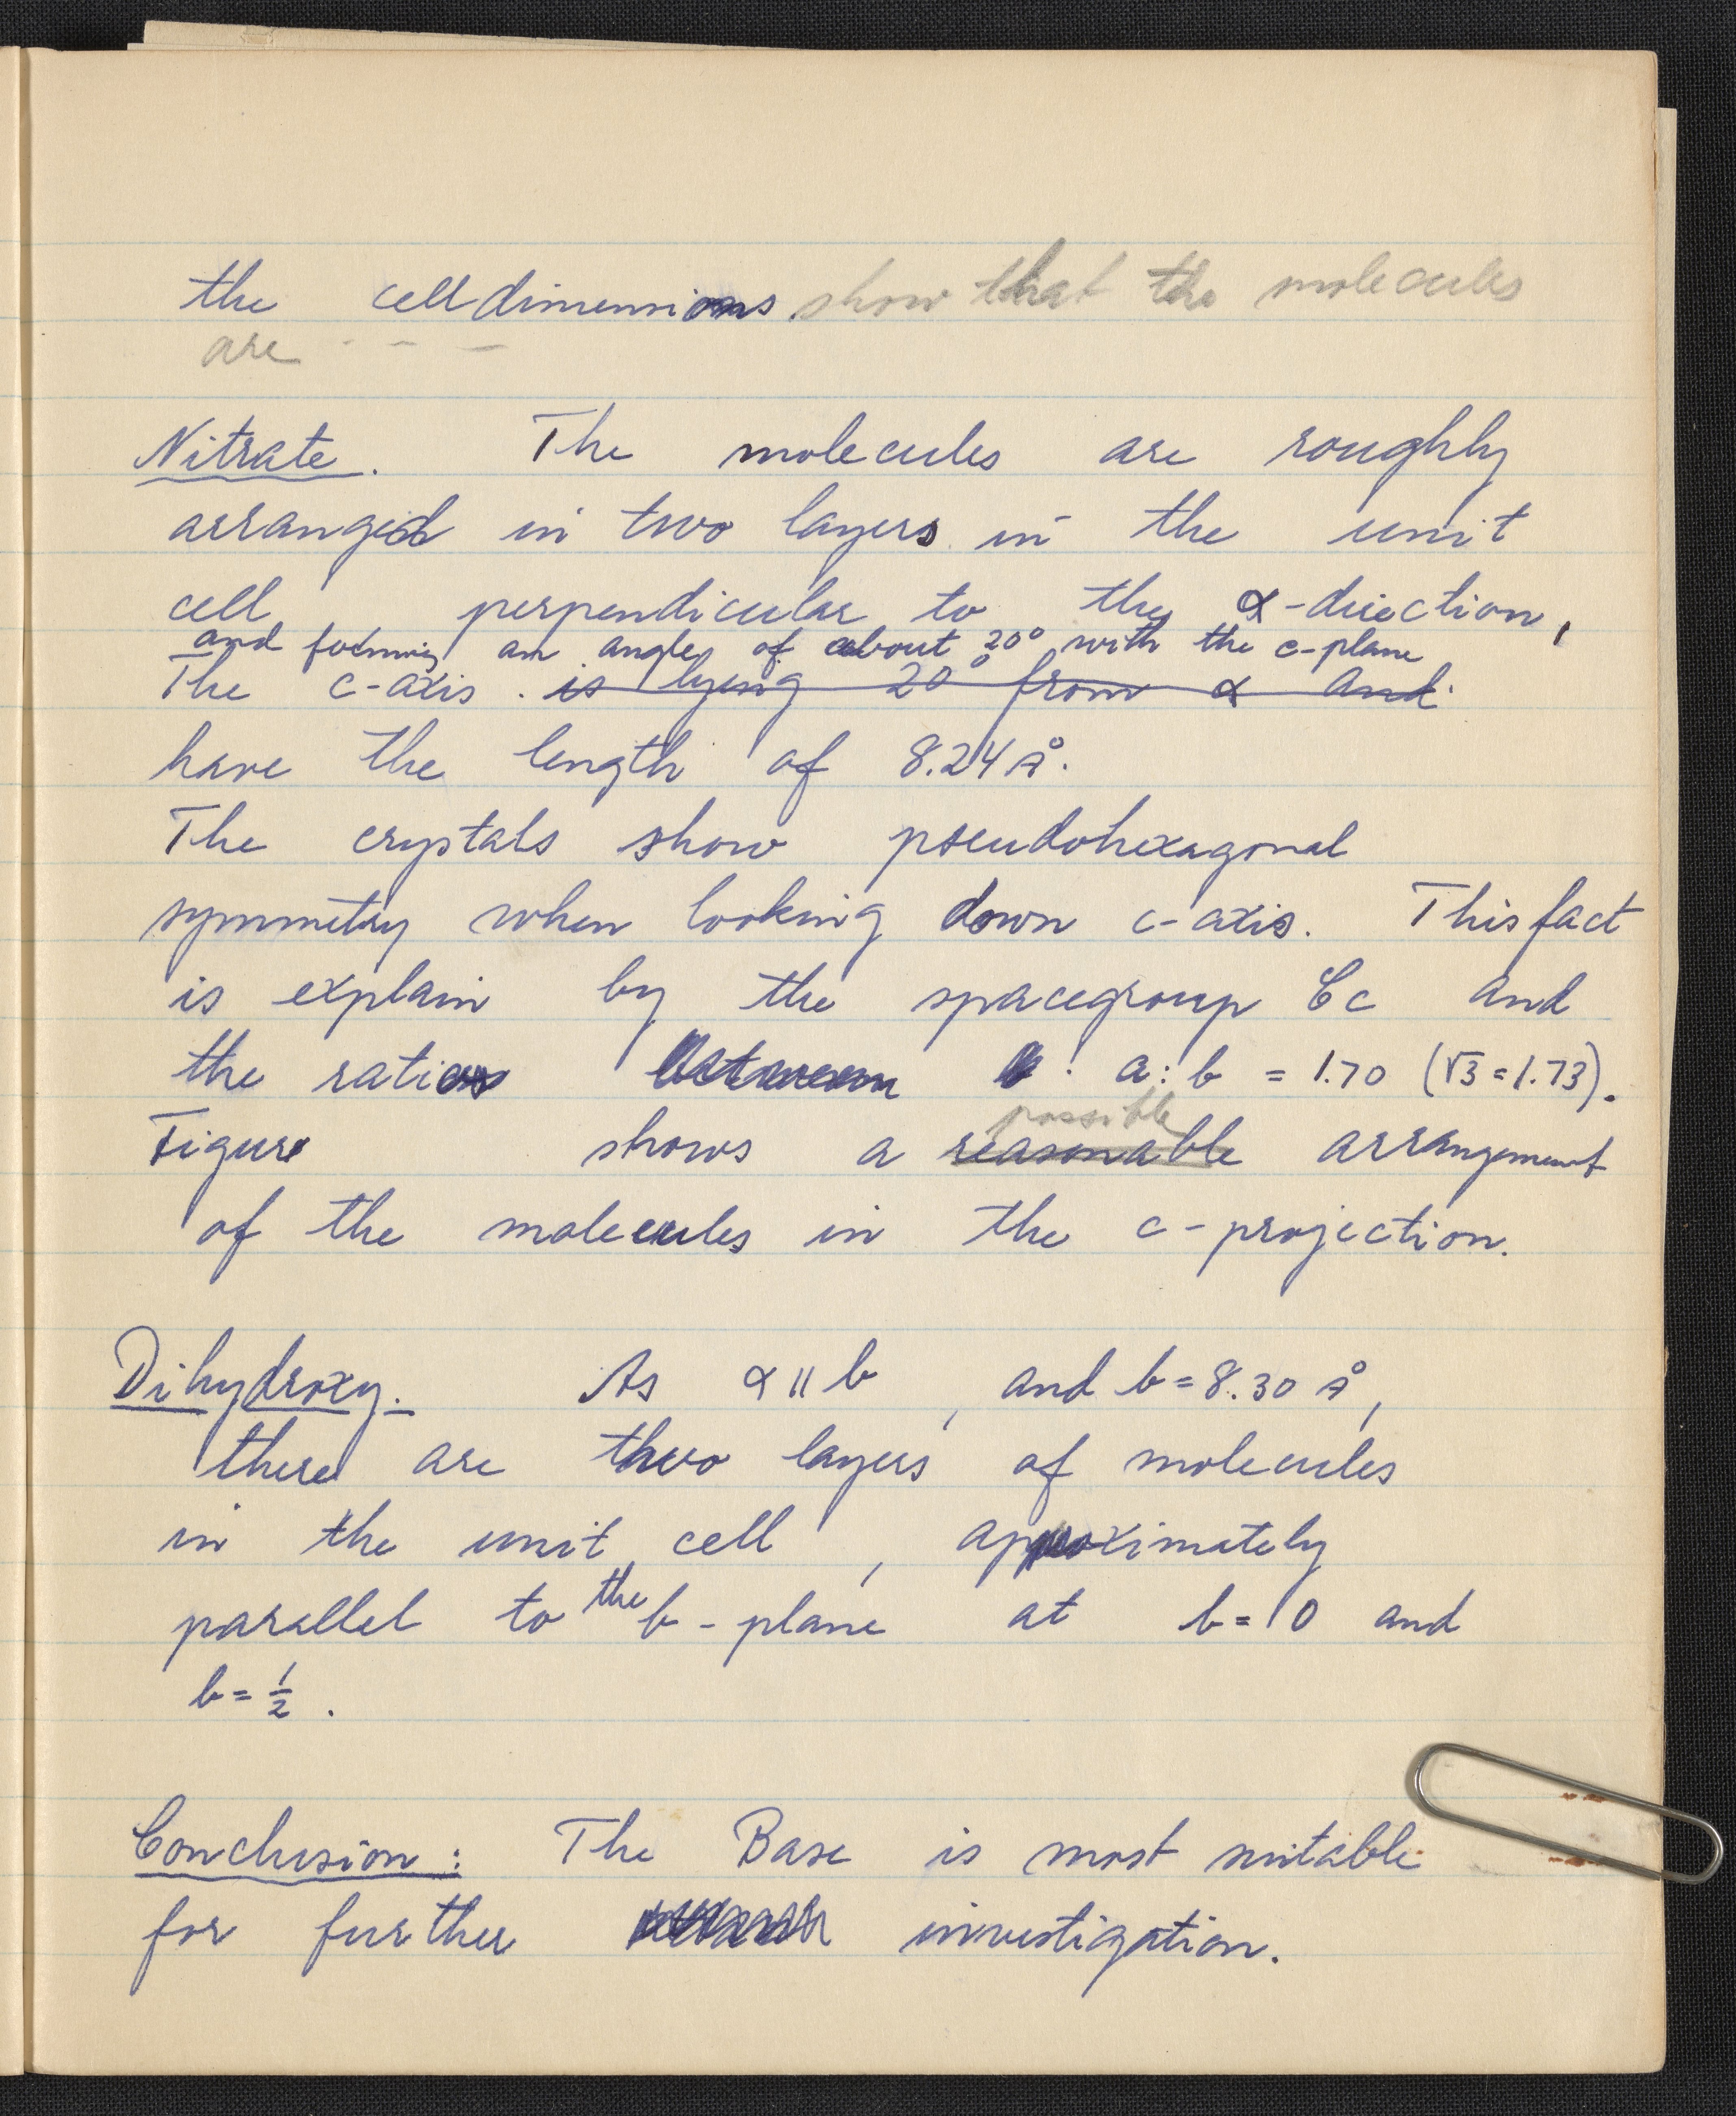 the celldimensions show that the molecules
are - - - -
Nitrate. The molecules are roughly
arranged in two layers in the unit
cell perpendicular to the α-direction,
and forming an angle of about 20° with the c-plane
The c-axis is lying 20° from α and
have the length of 8.24 Å.
The crystals show pseudohexagonal
symmetry when looking down c-axis. This fact
is explain by the spacegroup Cc and
the ratio between a:b = 1.70 (√3=1.73).
possible
Figure shows a reasonable arrangement
of the molecules in the c-projection.
Dihydroxy. As α || b, and b=8.30 Å,
there are two layers of molecules
in the unit cell, approximately
parallel to the b-plane at b=0 and
b=½.
Conclusion: The Base is most suitable
for further investigation.